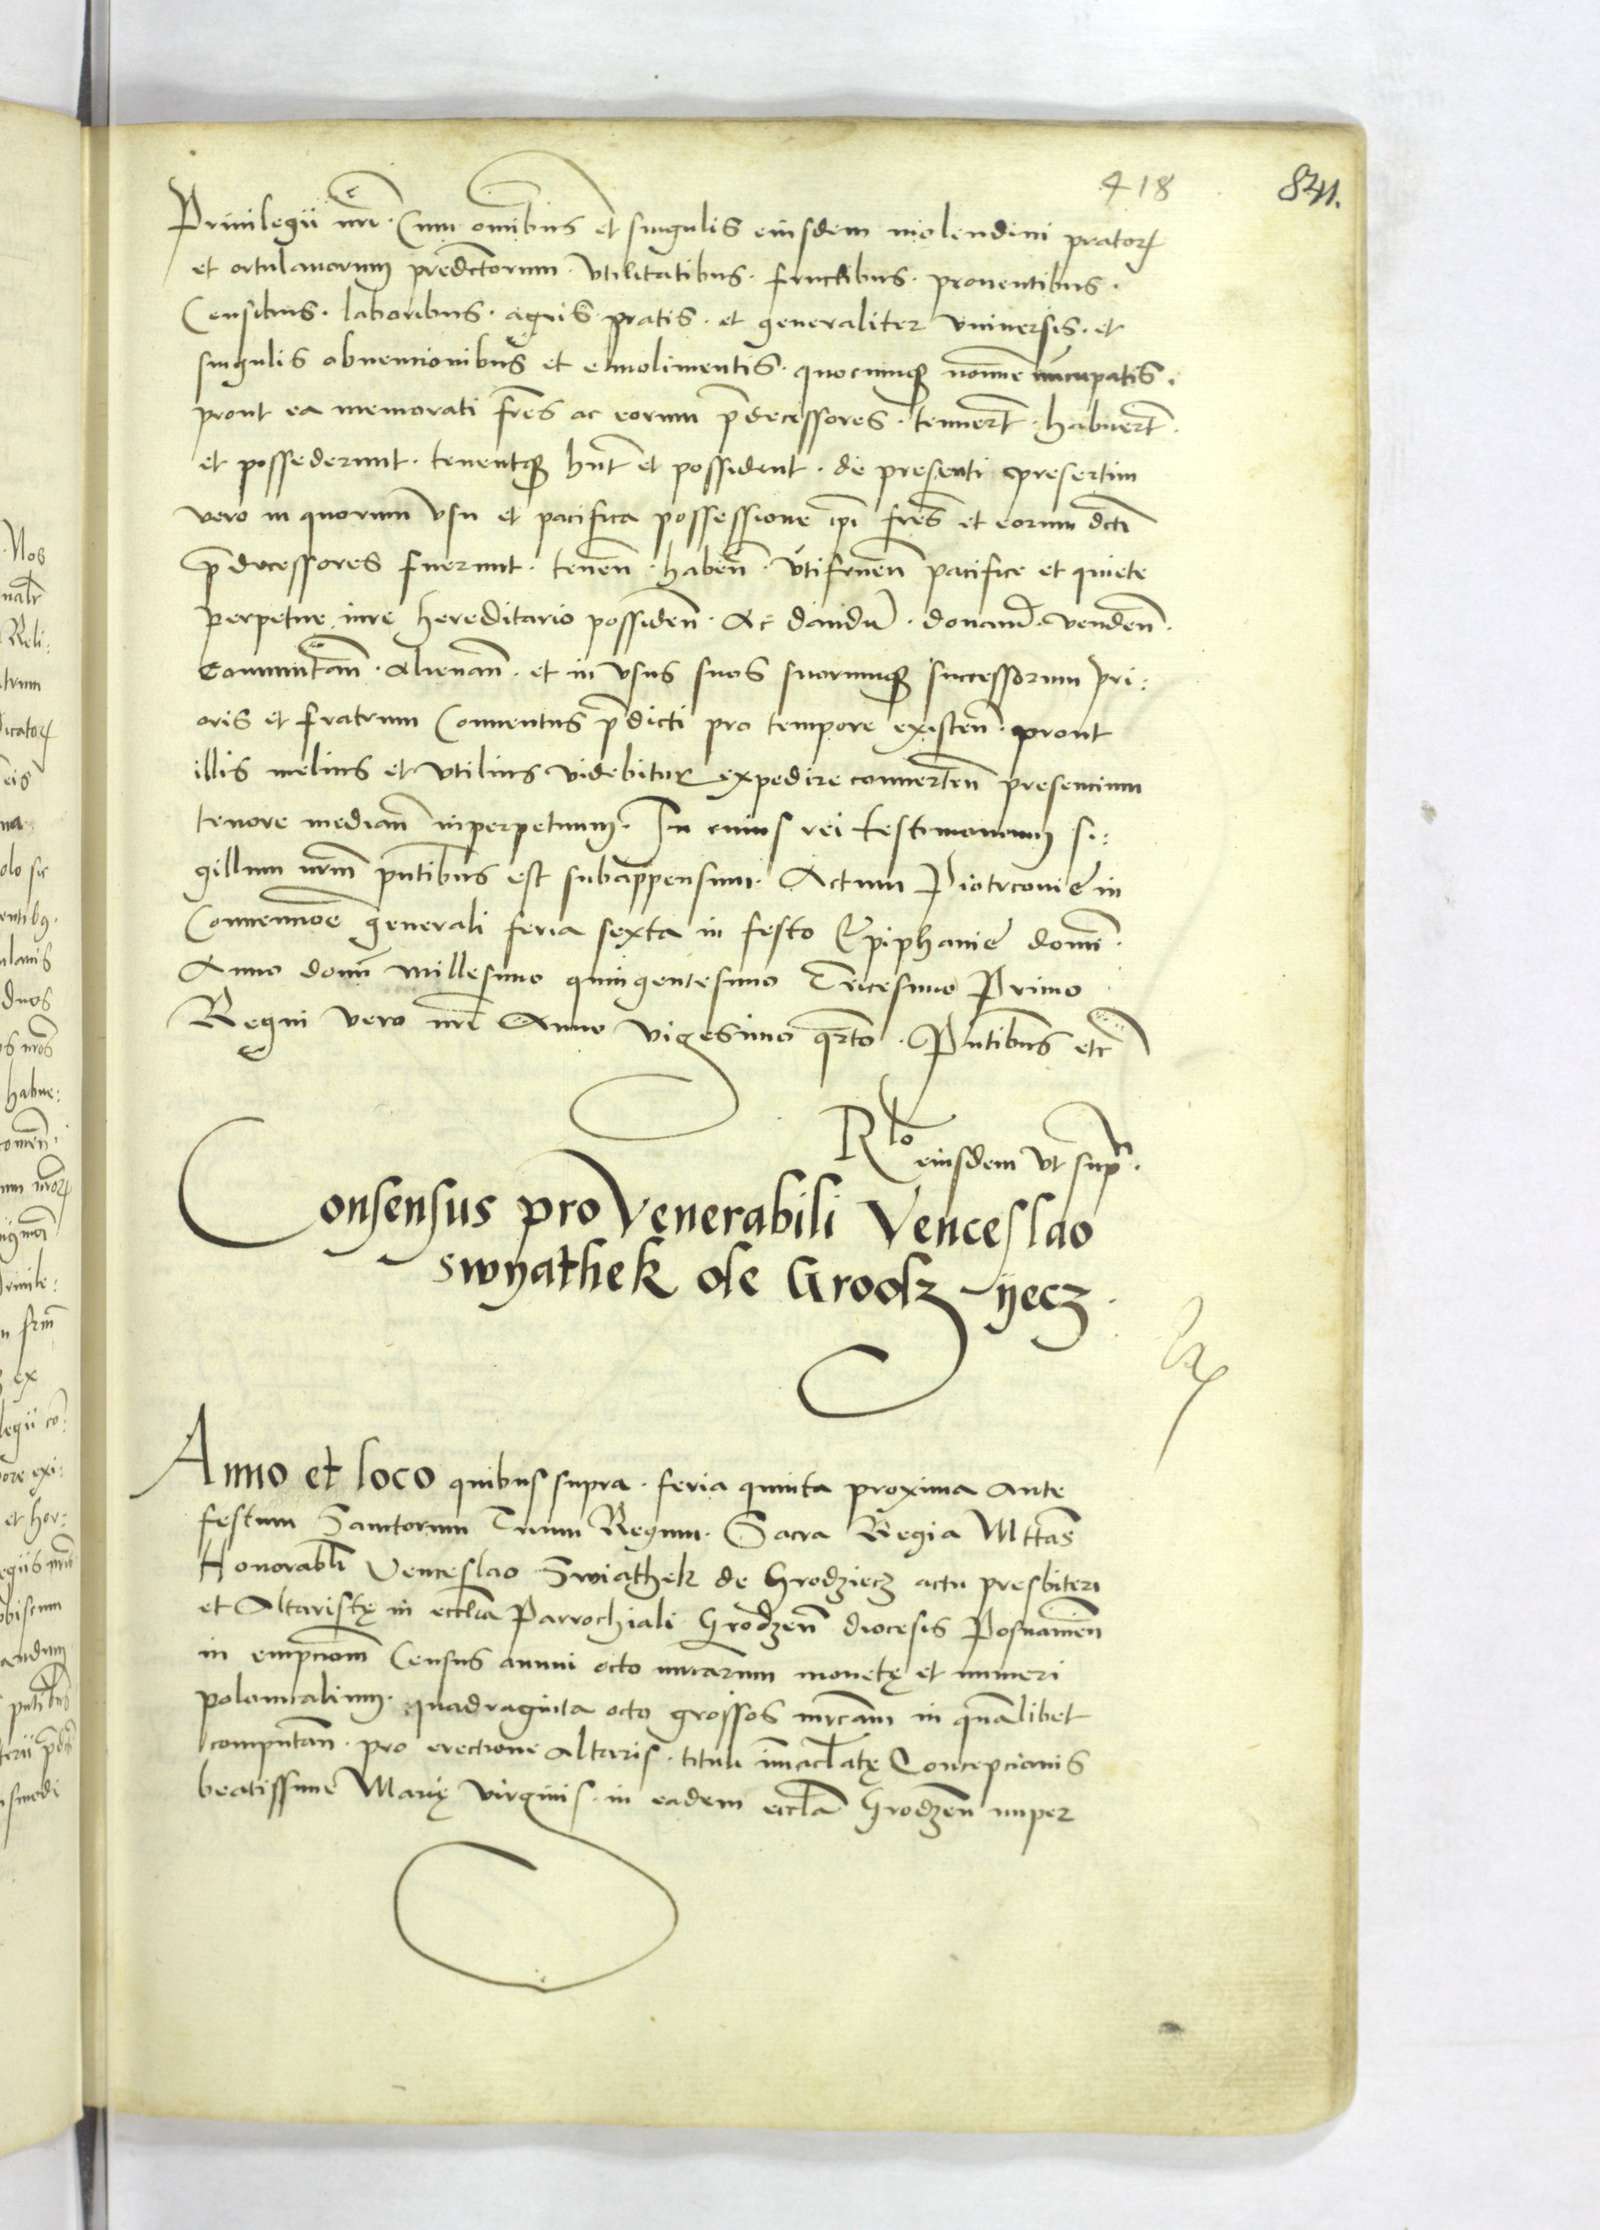 418
841.
Priuilegii nrē. Cum omībus et singulis eiusdem molendini pratorꝝ
et ortulanorum predictorum. vtilitatibus. fructibus. prouentibus.
Censibus. laboribus. agris pratis. et generaliter vniuersis. et
singulis obuencionibus et emolimentis. quocumqꝫ nomīne nūcupatis.
prout ea memorati frēs ac eorum p̄decessores. tenuerūt. habuerūt.
et possederunt. tenentqꝫ hn̄t et possident. de presenti presertim
vero in quorum vsu et pacifica possessione ip̄i frēs et eorum dc̄ti
p̄decessores fuerunt. tenen̄. haben̄. vtifruen̄ pacifice et quiete
perpetue iure hereditario possiden̄. Ac dandū. donand̄. venden̄.
Commutan̄. alienan̄. et in vsus suos suorumqꝫ successorum pri:
oris et fratrum Conuentus p̄dicti pro tempore existen̄. prout
illis melius et vtilius videbitur expedire conuerten̄ presencium
tenore median̄ inperpetuum. In cuius rei testimonium si:
gillum nr̄m pn̄tibus est subappensum. Actum Piotrcouie in
Conuencioē generali feria sexta in festo Epiphanie domī.
Anno domī millesimo quingentesimo Tricesimo Primo
Regni vero nrī Anno vigesimo qr̄to. Pn̄tibus etc̄
Rlo eiusdem vt supr̄.
Consensus pro Venerabili Venceslao
swyathek de Grodzyecz.
Anno et loco quibus supra. feria quinta proxima ante
festum Sanctorum Trium Regum. Sacra Regia Mttas̄
Honorabli Venceslao Swiathek de Grodziecz actu presbitero
et Altaristę in ecclīa Parrochiali Grodzen̄ diocesis Posnanien̄
in empcioem̄ Census annui octo mrcarum monetę et numeri
polonicalium. quadraginta octo grossos mrcam̄ in qualibet
computan̄. pro erectione altaris. tituli im̄aclatę Concepcionis
beatissime Marię virginis. in eadem eccl̄a Grodzen̄ nuper